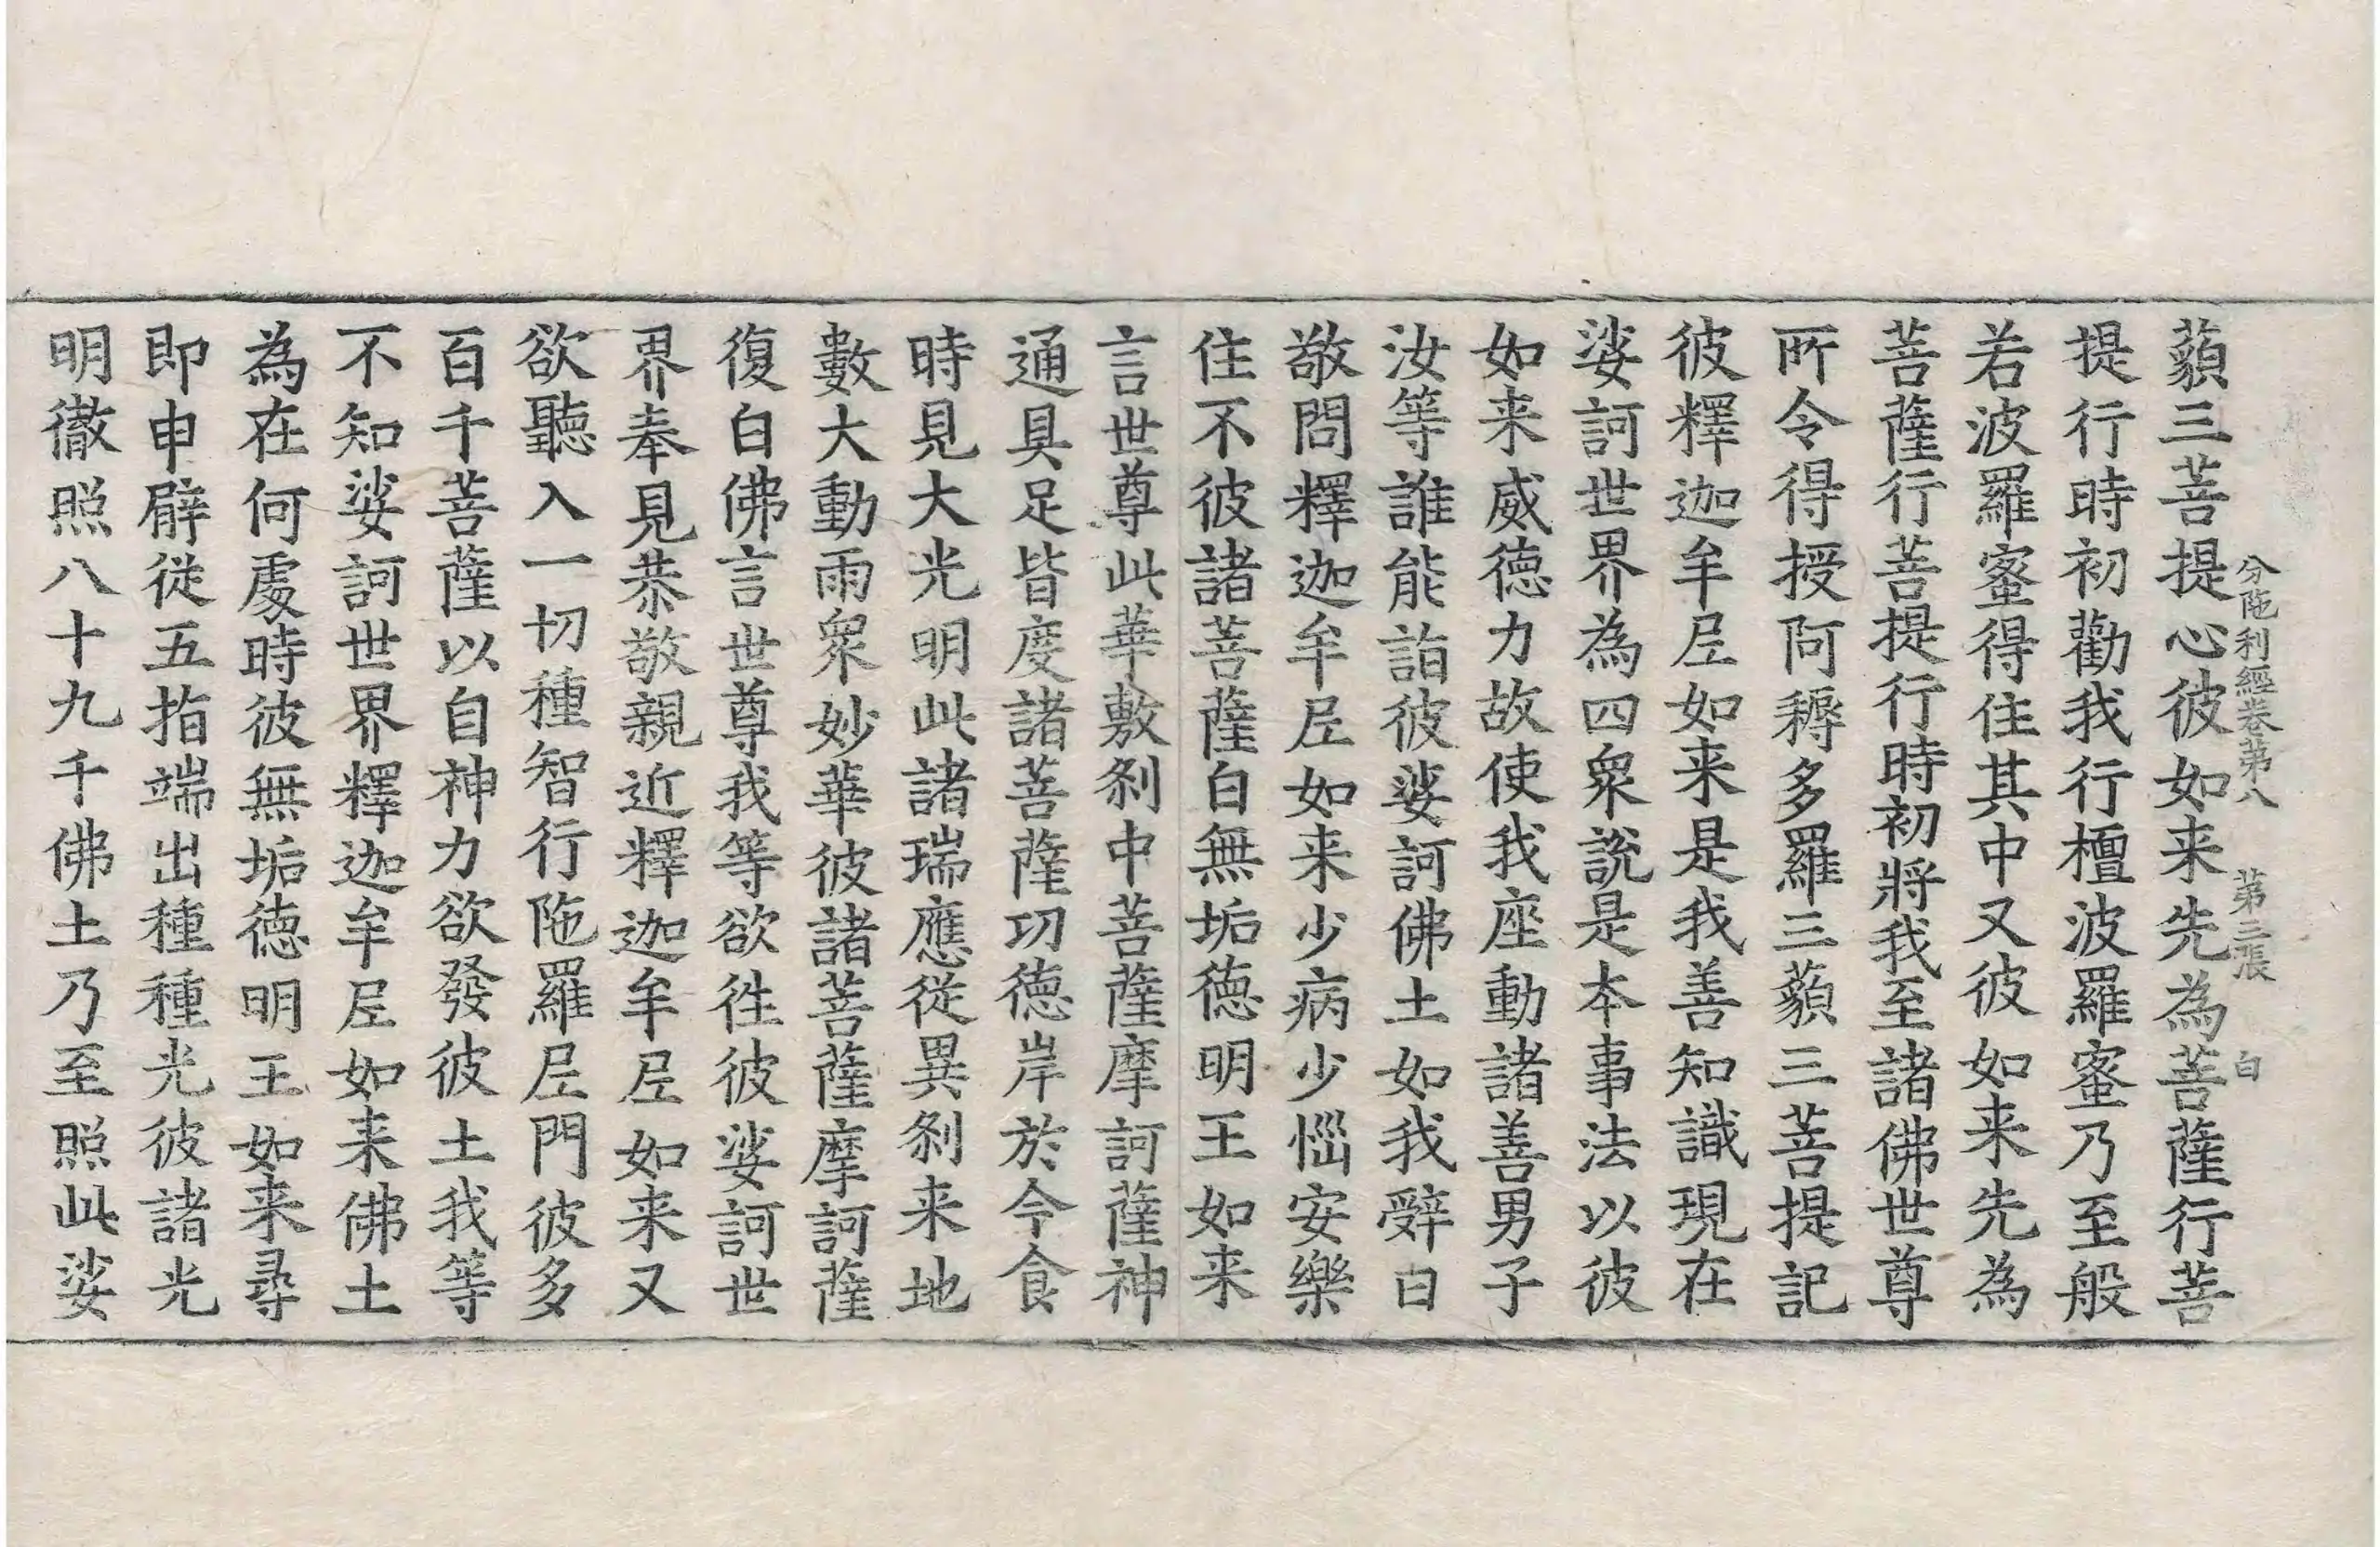 分陁利經卷第八 第三張 白
藐三菩提心彼如来先為菩薩行菩
提行時初勸我行檀波羅蜜乃至般
若波羅蜜得住其中又彼如来先為
菩薩行菩提行時初將我至諸佛世尊
所令得授阿耨多羅三藐三菩提記
彼釋迦牟尼如来是我善知識現在
娑訶世界為四衆說是本事法以彼
如来威德力故使我座動諸善男子
汝等誰能詣彼娑訶佛土如我辤曰
敬問釋迦牟尼如来少病少惱安樂
住不彼諸菩薩白無垢德明王如来
言世尊此華敷刹中菩薩摩訶薩神
通具足皆度諸菩薩功德岸於今食
時見大光明此諸瑞應従異刹来地
數大動雨衆妙華彼諸菩薩摩訶薩
復白佛言世尊我等欲徃彼娑訶世
界奉見恭敬親近釋迦牟尼如来又
欲聽入一切種智行陁羅尼門彼多
百千菩薩以自神力欲發彼土我等
不知娑訶世界釋迦牟尼如来佛土
為在何處時彼無垢德明王如来尋
即申臂従五指端出種種光彼諸光
明徹照八十九千佛土乃至照此娑